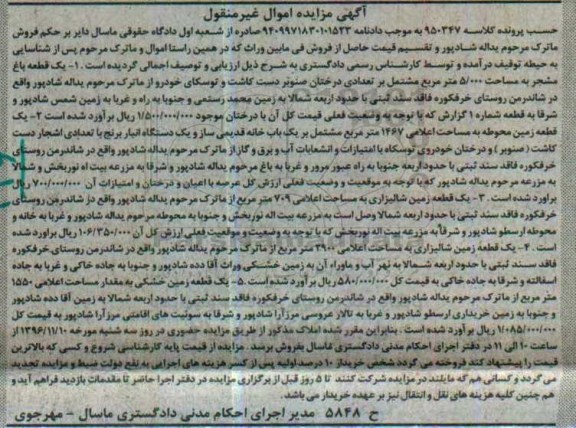 آگهی مزایده اموال غیرمنقول
حسب پرونده کلاسه ۹۵۰۳۴۷ به موجب دادنامه ۱۰۱۵۲۳-۹۴۰۹۹۷۱۸۳ صادره از شعبه اول دادگاه حقوقی ماسال دایر بر حکم فروش
ماترک مرحوم یداله شادپور و تقسیم قیمت حاصل از فروش فی مابین وراث که در همین راستا اموال و ماترک مرحوم پس از شناسایی
به حیطه توقیف در آمده و توسط کارشناس رسمی دادگستری به شرح ذیل ارزیابی و توصیف اجمالی گردیده است. ۱- یک قطعه باغ
مشجر به مساحت ۵/۰۰۰ متر مربع مشتمل بر تعدادی درختان صنوبر دست کاشت و توسکای خودرو از ماترک مرحوم یداله شادپور واقع
در شاندرمن روستای خرفکوره فاقد سند ثبتی با حدود اربعه شمالا به زمین محمد رستمی و جنوبا به راه و غربا به زمین شمس شادپور و
شرقا به قطعه شماره ۱ گزارش که با توجه به وضعیت فعلی قیمت کل آن با درختان موجود ۱/۵۰۰/۰۰۰/۰۰۰ ریال برآورد شده است ۲- یک
قطعه زمین محوطه به مساحت اعلامی ۱۴۶۷ متر مربع مشتمل بر یک باب خانه قدیمی ساز و یک دستگاه انبار برنج با تعدادی اشجار دست
کاشت (صنوبر) و درختان خودروی توسکاه با امتیازات و انشعابات آب و برق و گاز از ماترک مرحوم یداله شادپور واقع در شاندرمن روستای
خرفکوره فاقد سند ثبتی با حدود اربعه جنوبا به راه عبور مرور و غربا به باغ مرحوم یداله شادپور و شرقا به مزرعه بیت اله نوربخش و شمالا
به مزرعه مرحوم یداله شادپور که با توجه به موقعیت و وضعیت فعلی ارزش کل عرصه با اعیان و درختان و امتیازات آن ۷۰۰/۰۰۰/۰۰۰ ریال
برآورد شده است. ۳- یک قطعه زمین شالیزاری به مساحت اعلامی ۷۰۹ متر مربع از ماترک مرحوم یداله شادپور واقع در شاندرمن روستای
خرفکوره فاقد سند ثبتی با حدود اربعه شمالا وصل است به مزرعه بیت اله نوربخش و جنوبا به محوطه مرحوم یداله شادپور و غربا به خانه و
محوطه ارسطو شادپور و شرقاً به مزرعه بیت اله نوربخش که با توجه به وضعیت و موقعیت فعلی ارزش کل آن ۱۰۶/۳۵۰/۰۰۰ ریال برآورد شده
است. ۴- یک قطعه زمین شالیزاری به مساحت اعلامی ۲۹۰۰ متر مربع از ماترک مرحوم یداله شادپور واقع در شاندرمن روستای خرفکوره
فاقد سند ثبتی با حدود اربعه شمالا به نهر آب و ماوراء آن به زمین خشکی وراث آقا دده شادپور و جنوبا به جاده خاکی و غربا به جاده
اسفالته و شرقا به جاده خاکی به قیمت کل ۵۸۰/۰۰۰/۰۰۰ ریال برآورد شده است. ۵- یک قطعه زمین خشکی به مقدار مساحت اعلامی ۱۵۵۰
متر مربع از ماترک مرحوم یداله شادپور واقع در شاندرمن روستای خرفکوره فاقد سند ثبتی با حدود اربعه شمالا به زمین آقا دده شادپور
و جنوبا به زمین خریداری ارسطو شادپور و غربا به تالار عروسی میرزا آرا شادپور و شرقا به سوئیت های اقامتی میرزا آرا شادپور به قیمت کل
۱/۰۸۵/۰۰۰/۰۰۰ ریال برآورد شده است. بنابراین مقرر شده املاک مذکور از طریق مزایده حضوری در روز سه شنبه مورخه ۱۳۹۶/۱۱/۱۰ از
ساعت ۱۰ الی ۱۱ در دفتر اجرای احکام مدنی دادگستری ماسال بفروش برسد. مزایده از قیمت پایه کارشناسی شروع و کسی که بالاترین
قیمت را پیشنهاد کند فروخته می گردد شخص خریدار ۱۰ درصد اولیه پس از کسر هزینه های اجرایی به نفع دولت ضبط و مزایده تجدید
می گردد و کسانی هم که مایلند در مزایده شرکت کنند تا ۵ روز قبل از برگزاری مزایده در دفتر اجرا حاضر تا مقدمات بازدید فراهم آید و
هم چنین کلیه هزینه های نقل و انتقال نیز بر عهده خریدار می باشد.
ح ۵۸۴۸ مدیر اجرای احکام مدنی دادگستری ماسال - مهرجوی